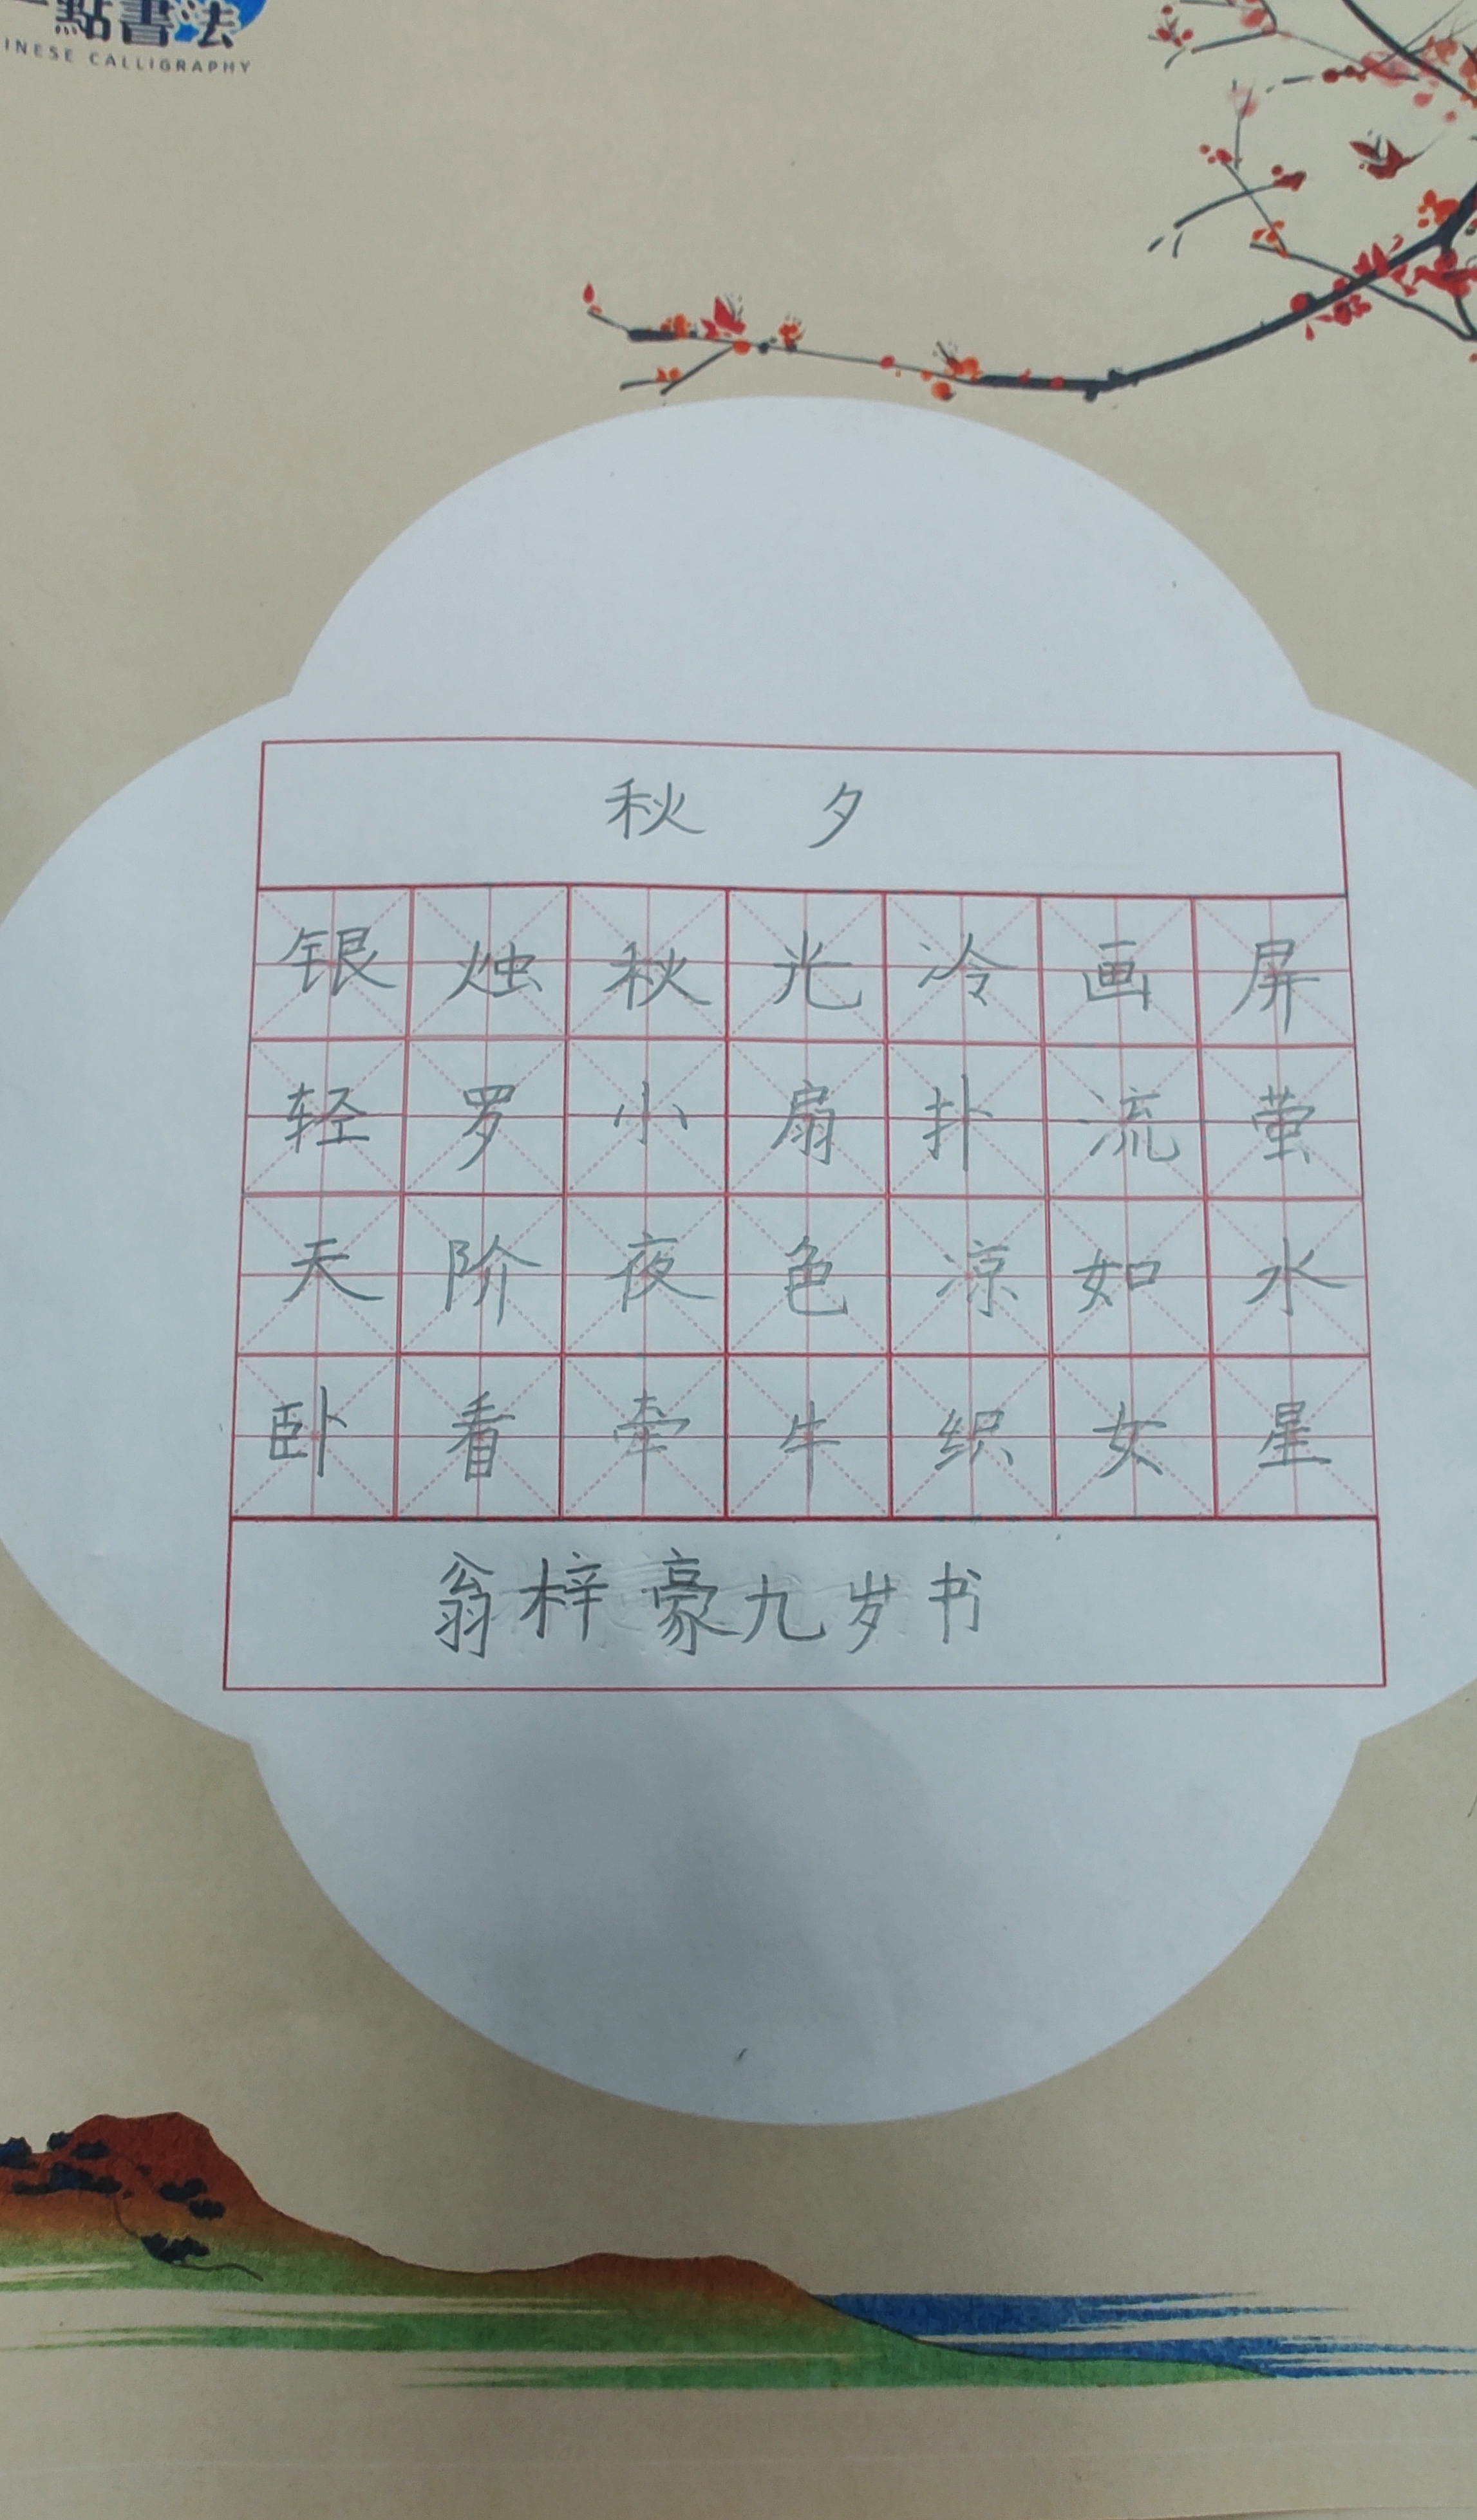 一點書法
INESE CALLIGRAPHY
秋 夕
银烛秋光冷画屏
轻罗小扇扑流萤
天阶夜色凉如水
卧看牵牛织女星
翁梓豪九岁书